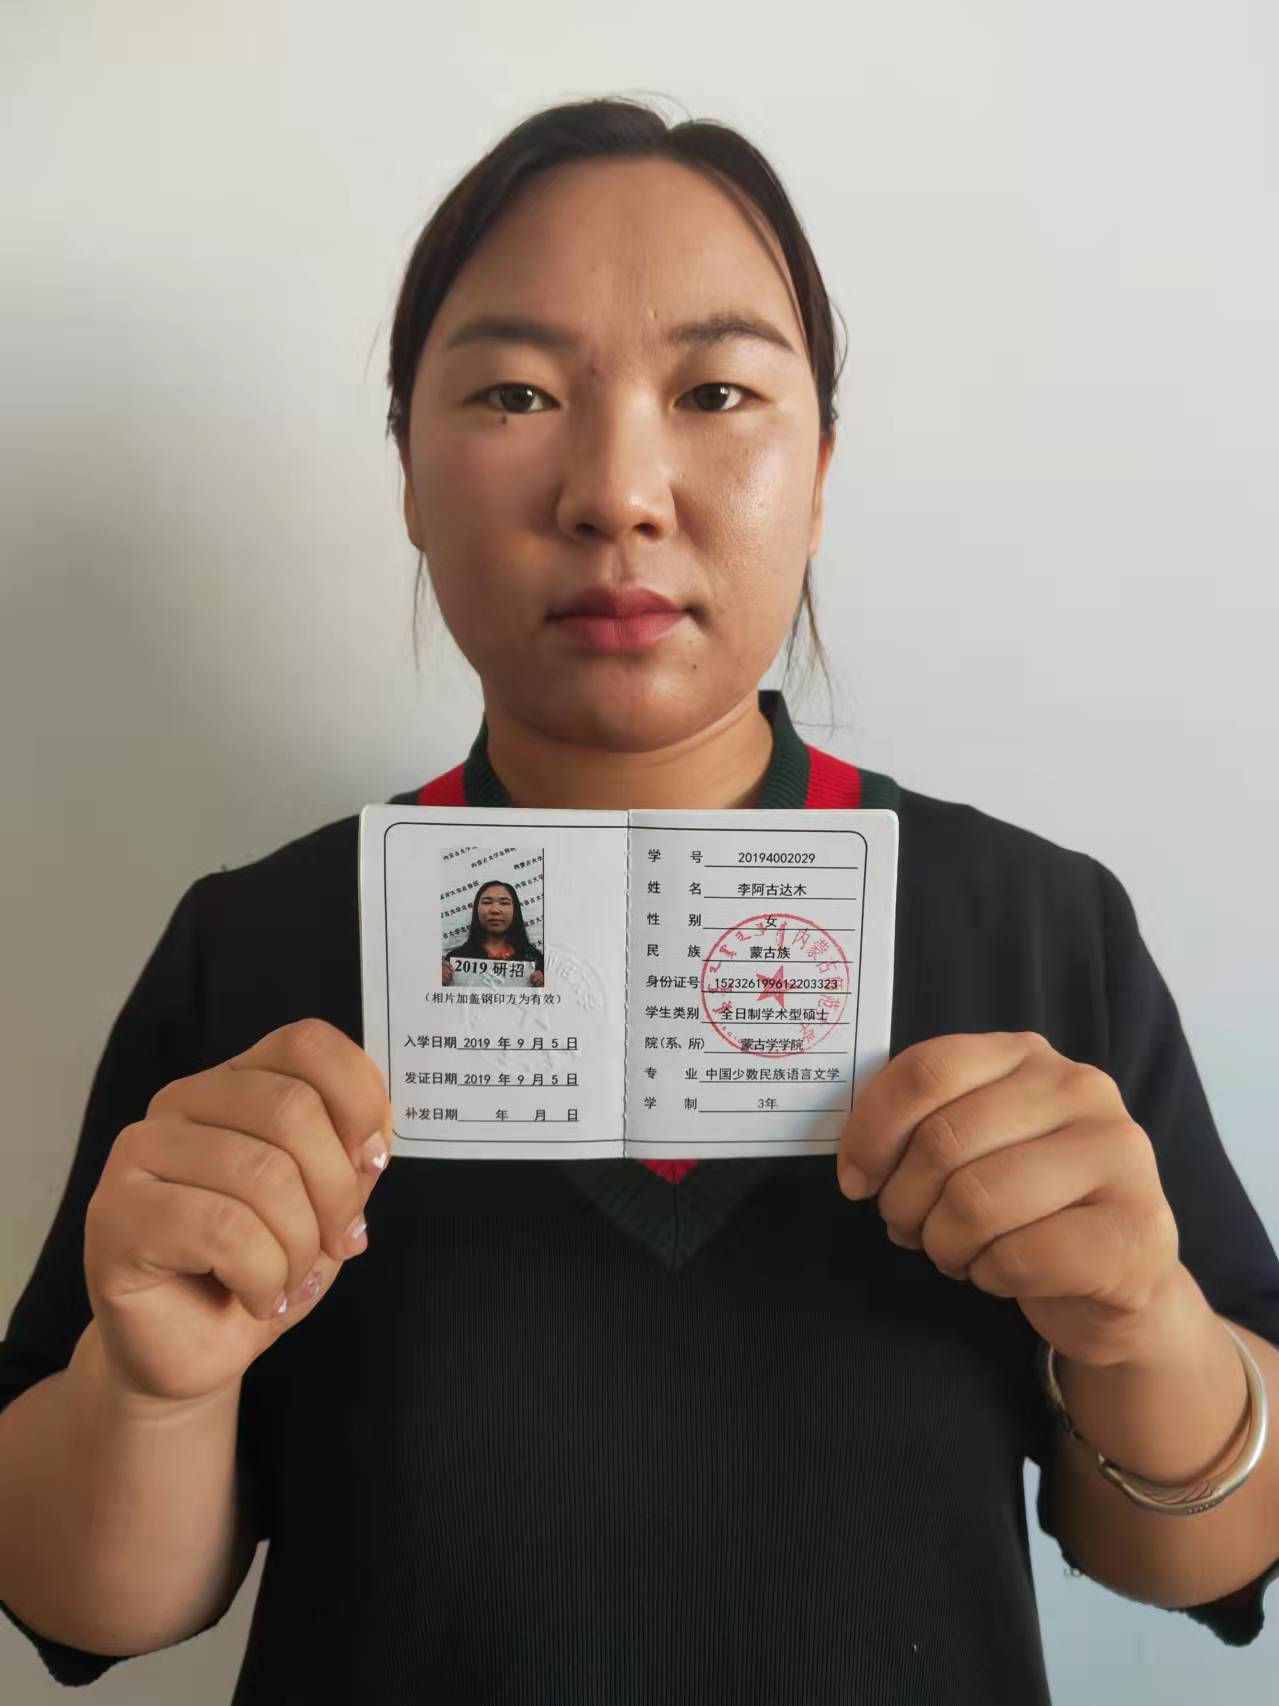 2019 研招
（相片加盖钢印方为有效）
入学日期 2019 年 9 月 5 日
发证日期 2019 年 9 月 5 日
补发日期 年 月 日
学 号 20194002029
姓 名 李阿古达木
性 别 女
民 族 蒙古族
身份证号 152326199612203323
学生类别 全日制学术型硕士
院（系、所） 蒙古学学院
专 业 中国少数民族语言文学
学 制 3年
内蒙古师范大学